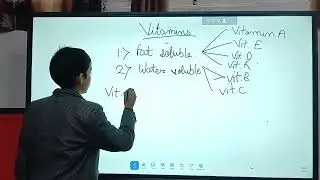 Vitamins
Vitamin A
1) Fat soluble
Vit. E
Vit. D
Vit. K
2) Water soluble
Vit B
Vit C
Vit.